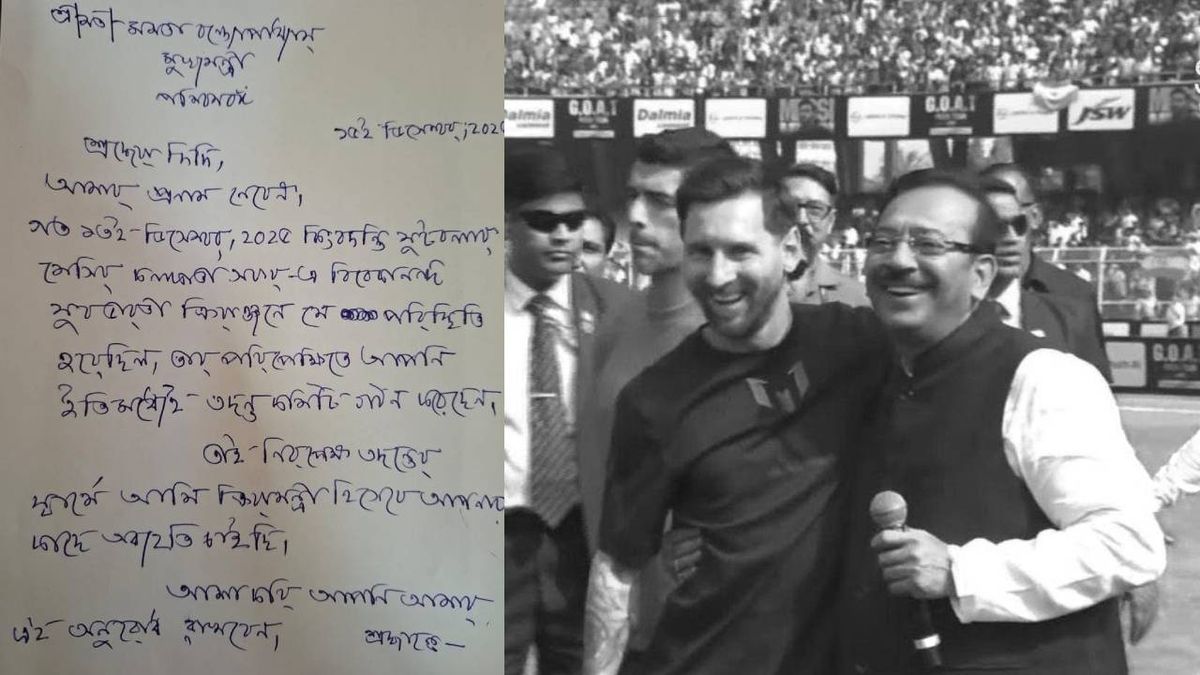 শ্রীমতী মমতা বন্দ্যোপাধ্যায়
মুখ্যমন্ত্রী
পশ্চিমবঙ্গ
১৫ই ডিসেম্বর, ২০২৫
শ্রদ্ধেয় দিদি,
আমার প্রণাম নেবেন।
গত ১৩ই ডিসেম্বর, ২০২৫ কিংবদন্তি ফুটবলার
মেসির কলকাতা সফর-এ বিবেকানন্দ
যুবভারতী ক্রীড়াঙ্গনে যে পরিস্থিতি
হয়েছিল, তার পরিপ্রেক্ষিতে আপনি
ইতিমধ্যেই তদন্ত কমিটি গঠন করেছেন।
তাই নিরপেক্ষ তদন্তের
স্বার্থে আমি ক্রীড়ামন্ত্রী হিসেবে আপনার
কাছে অব্যহতি চাইছি।
আশা করি আপনি আমার
এই অনুরোধ রাখবেন। শ্রদ্ধান্তে —
Dalmia
G.O.A.T
Dalmia
G.O.A.T
JSW
G.O.A.T
M